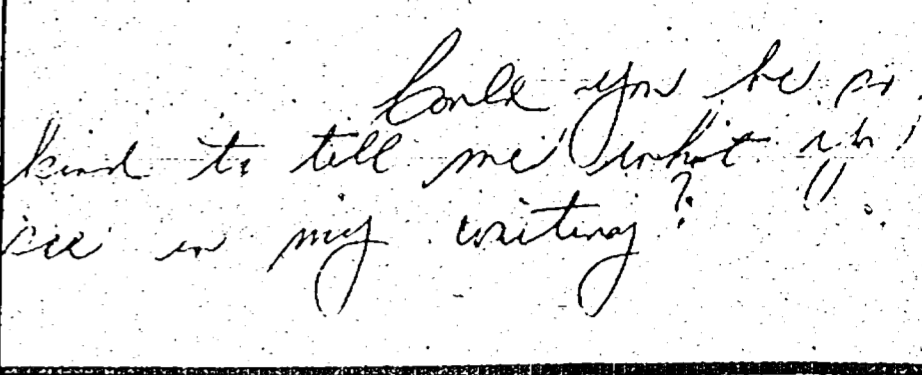 Could you be so
kind to tell me what
see in my writing?